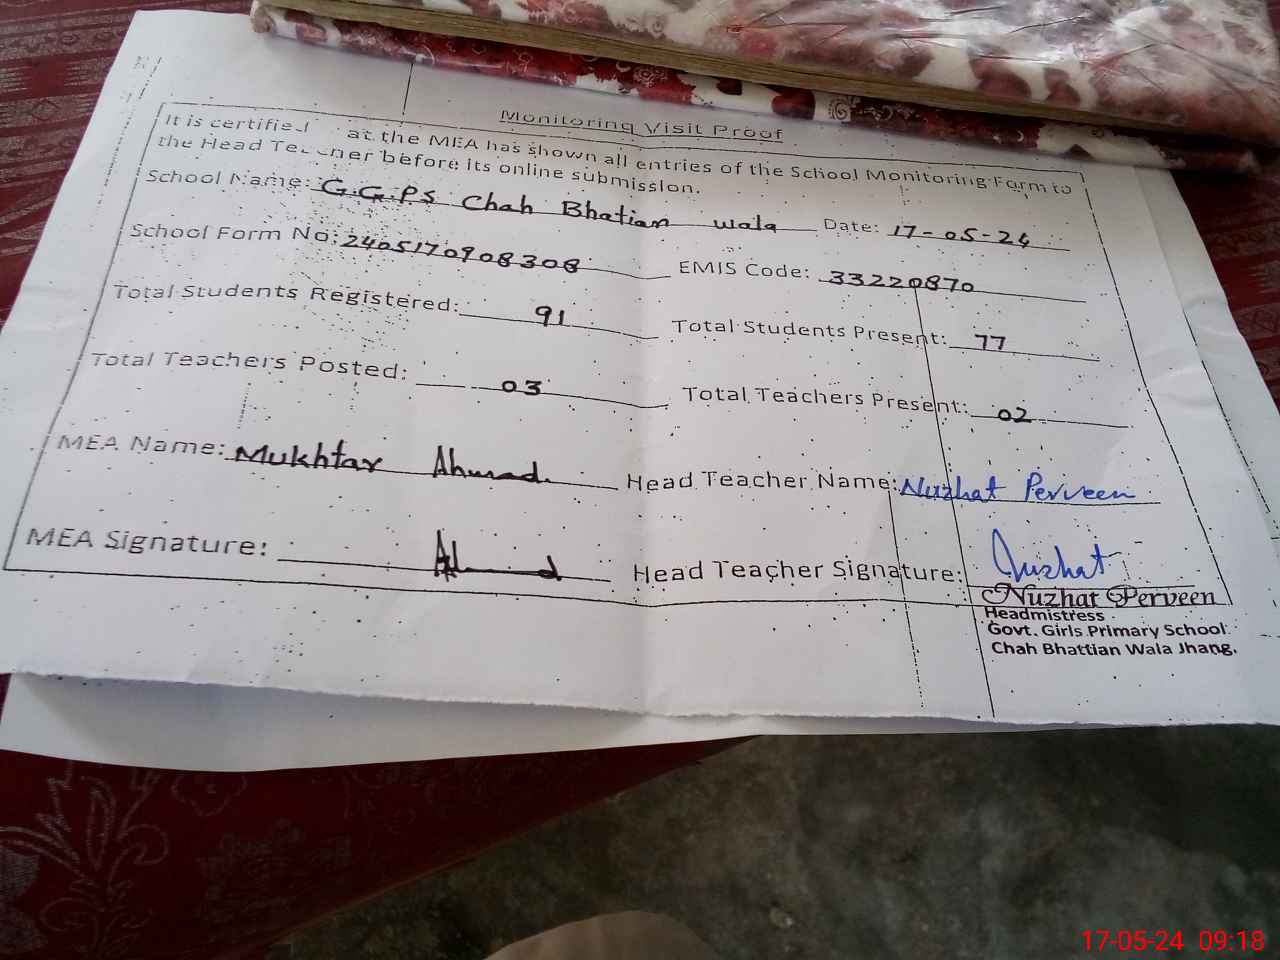 Monitoring Visit Proof
It is certified at the MEA has shown all entries of the School Monitoring Form to
the Head Teacher before its online submission.
School Name: G.G.PS Chah Bhatian wala Date: 17-05-24
School Form No: 2405170908308 EMIS Code: 33220870
Total Students Registered: 91 Total Students Present: 77
Total Teachers Posted: 03 Total Teachers Present: 02
MEA Name: Mukhtar Ahmad. Head Teacher Name: Nuzhat Perveen
MEA Signature: Ahmad Head Teacher Signature: Nuzhat
Nuzhat Perveen
Headmistress
Govt. Girls Primary School
Chah Bhattian Wala Jhang.
17-05-24 09:18